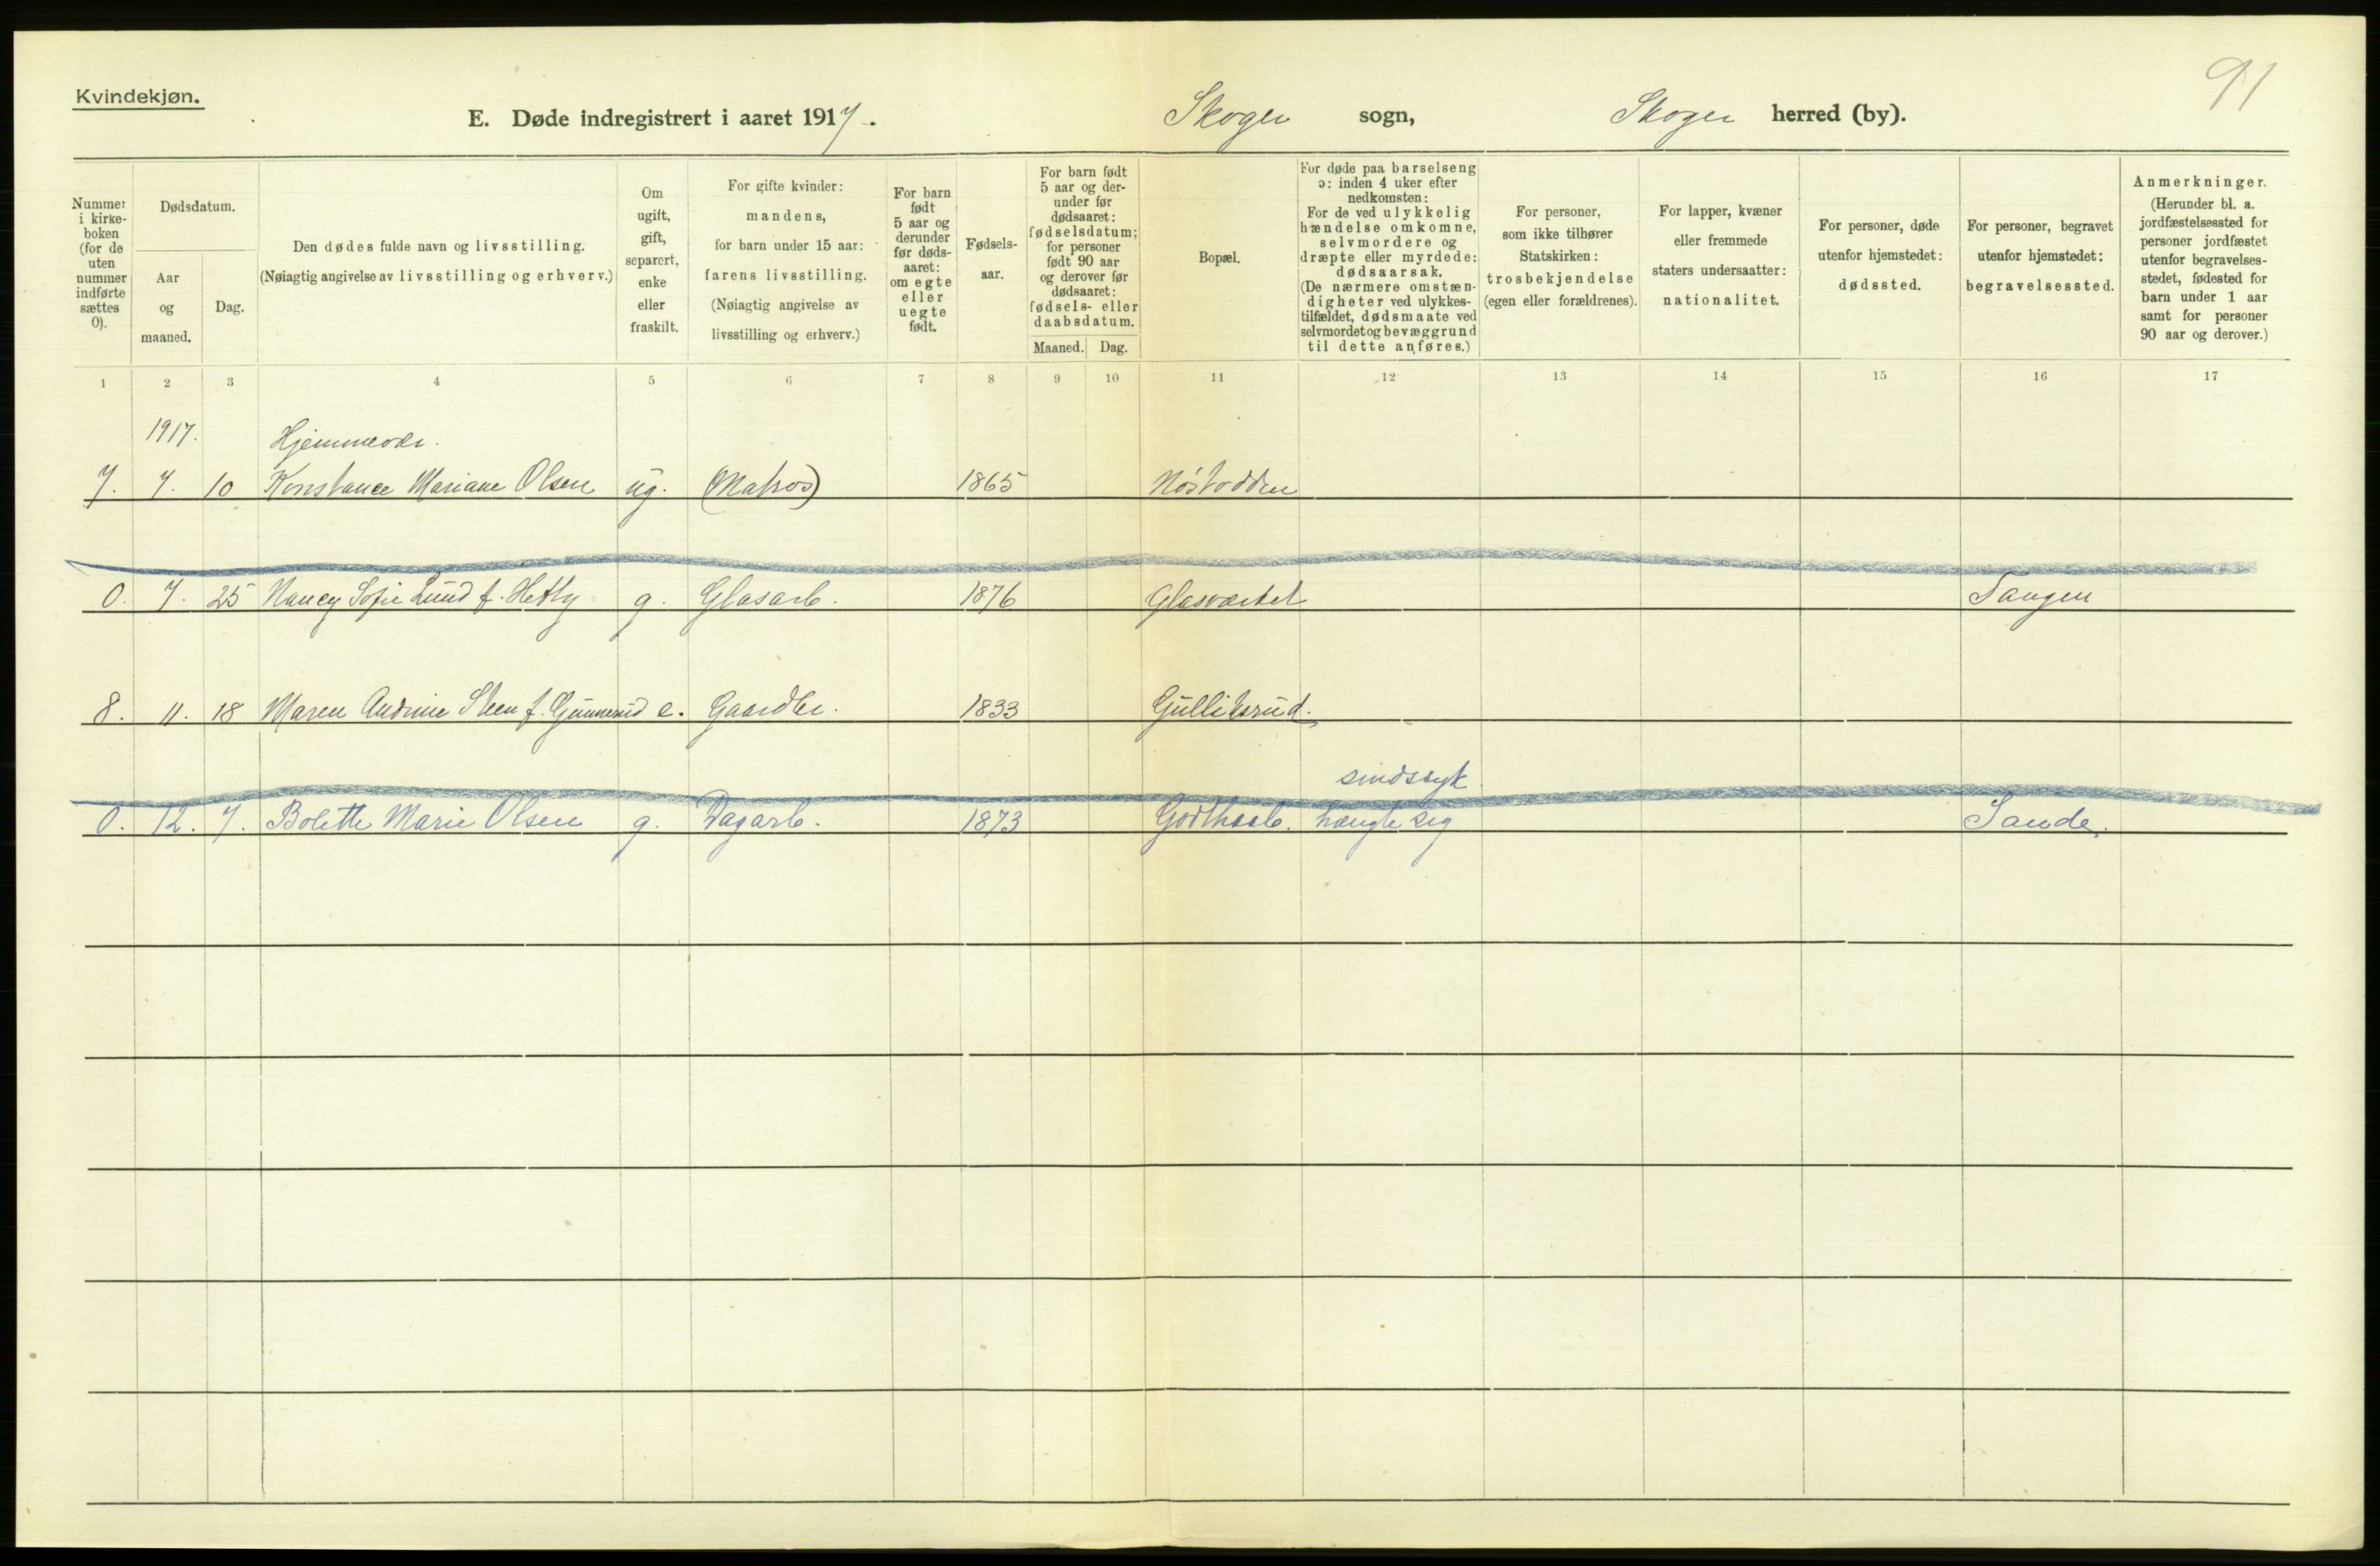 91
Kvindekjøn.
E. Døde indregistrert i aaret 1917. Skoger sogn, Skoger herred (by).
Nummer i kirkeboken (for de uten nummer indførte sættes 0).
Dødsdatum.
Aar og maaned.
Dag.
Den dødes fulde navn og livsstilling.
(Nøiagtig angivelse av livsstilling og erhverv.)
Om ugift, gift, separert, enke eller fraskilt.
For gifte kvinder: mandens, for barn under 15 aar: farens livsstilling. (Nøiagtig angivelse av livsstilling og erhverv.)
For barn født 5 aar og derunder før dødsaaret: om egte eller uegte født.
Fødselsaar.
For barn født 5 aar og derunder før dødsaaret: fødselsdatum; for personer født 90 aar og derover før dødsaaret: fødsels- eller daabsdatum.
Maaned. Dag.
Bopæl.
For døde paa barselseng ɔ: inden 4 uker efter nedkomsten: For de ved ulykkelig hændelse omkomne, selvmordere og dræpte eller myrdede: dødsaarsak. (De nærmere omstændigheter ved ulykkestilfældet, dødsmaate ved selvmordet og bevæggrund til dette anføres.)
For personer, som ikke tilhører Statskirken: trosbekjendelse (egen eller forældrenes).
For lapper, kvæner eller fremmede staters undersaatter: nationalitet.
For personer, døde utenfor hjemstedet: dødssted.
For personer, begravet utenfor hjemstedet: begravelsessted.
Anmerkninger. (Herunder bl. a. jordfæstelsessted for personer jordfæstet utenfor begravelsesstedet, fødested for barn under 1 aar samt for personer 90 aar og derover.)
1 2 3 4 5 6 7 8 9 10 11 12 13 14 15 16 17
1917. Hjemmevær.
7. 7. 10 Konstance Mariane Olsen ug. (Matros) 1865 Nøstodden
0. 7. 25 Nancy Sofie Lund f. Hetly g. Glasarb. 1876 Glasværket Tangen
8. 11. 18 Maren Andrine Steen f. Gunnerud e. Gaardbr. 1833 Gulliksrud.
sindssyk
0. 12. 7. Bolette Marie Olsen g. Dagarb. 1873 Godthaab. hængte sig Sande.